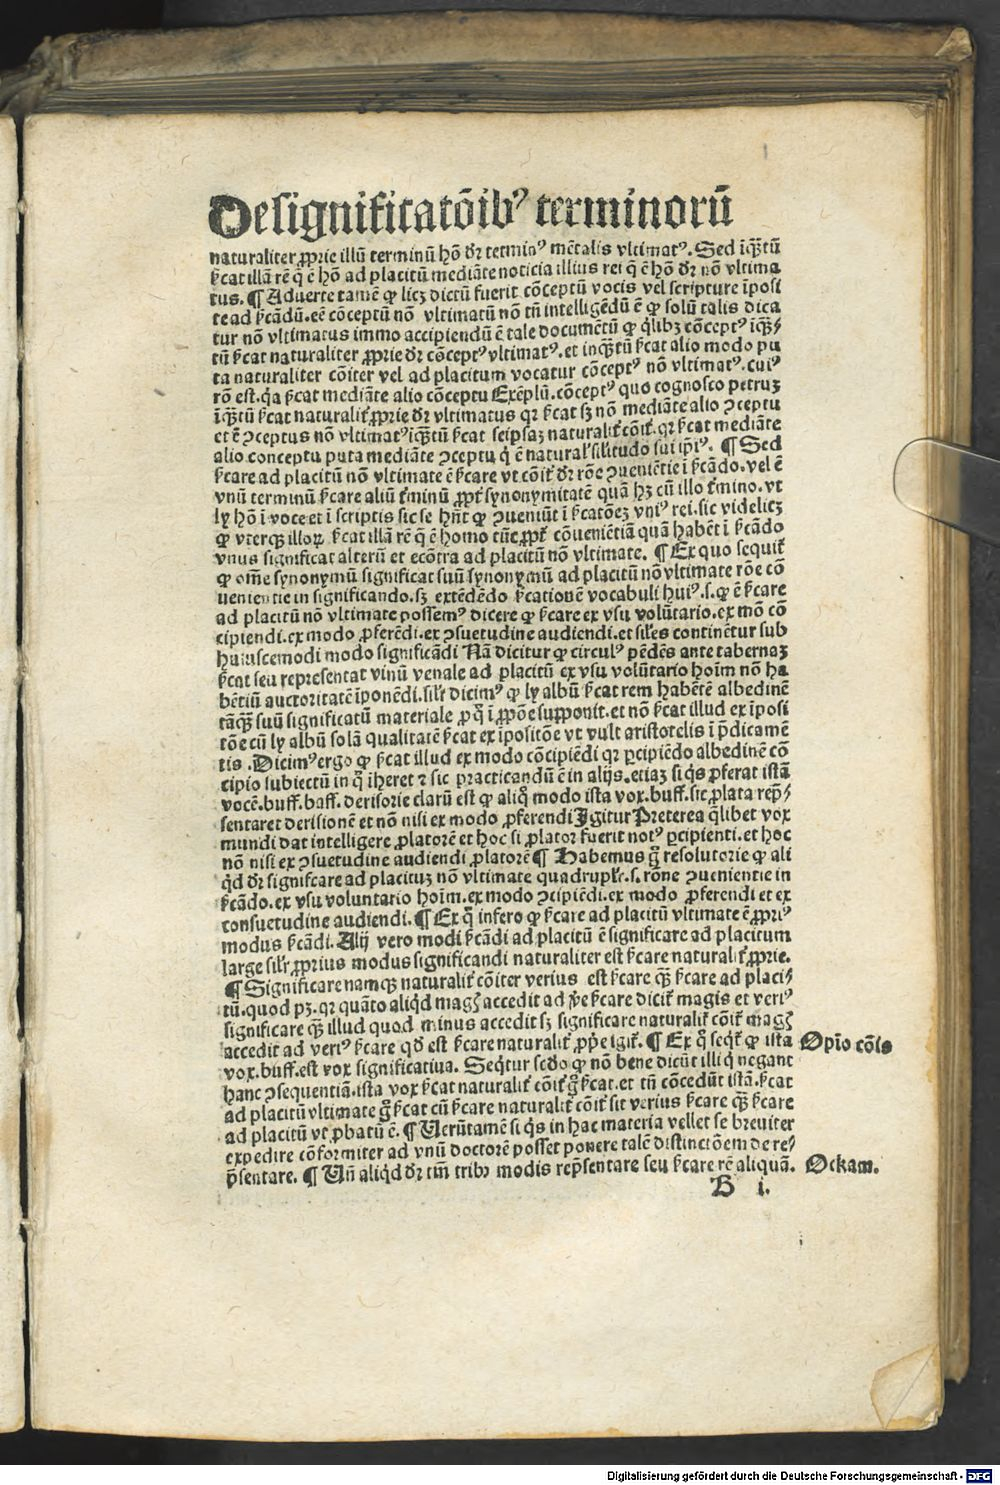 De significatōibꝰ terminorū
naturaliter ꝓprie illū terminū hō dr̄ terminꝰ mētalis vltimatꝰ. Sed īqȝtū
ſ̄cat illā rē q̄ ē hō ad placitū mediāte noticia illius rei q̄ ē hō dr̄ nō vltima
tus. ¶ Aduerte tamē ꝙ licȝ dictū fuerit cōceptū vocis vel scripture īposi
te ad ſ̄candū. eē cōceptū nō vltimatū nō tn̄ intelligēdū ē ꝙ solū talis dica
tur nō vltimatus immo accipiendū ē tale documētū ꝙ q̄libȝ cōceptꝰ īqȝ⸗
tū ſ̄cat naturaliter ꝓprie dr̄ cōceptꝰ vltimatꝰ. et inqȝtū ſ̄cat alio modo pu
ta naturaliter cōiter vel ad placitum vocatur cōceptꝰ nō vltimatꝰ. cuiꝰ
rō est. q̄a ſ̄cat mediāte alio cōceptu Exēplū. cōceptꝰ quo cognosco petruȝ
īqȝtū ſ̄cat naturalit̄ ꝓprie dr̄ vltimatus qr ſ̄cat sȝ nō mediāte alio ↄceptu
et ē ↄceptus nō vltimatꝰ īqȝtū ſ̄cat seipsaȝ naturalit̄ cōit̄. qr ſ̄cat mediāte
alio conceptu puta mediāte ↄceptu q̄ ē natural̄ silitudo sui ip̄iꝰ. ¶ Sed
ſ̄care ad placitū nō vltimate ē ſ̄care vt cōit̄ dr̄ rōe ↄueniētie ī ſ̄cādo. vel ē
vnū terminū ſ̄care aliū t̄minū ꝓpt̄ synonymitatē quā hȝ cū illo t̄mino. vt
ly hō ī voce et ī scriptis sic se hn̄t ꝙ ↄueniūt ī ſ̄catōeȝ vniꝰ rei. sic videlicȝ
ꝙ vterqȝ illoꝝ ſ̄cat illā rē q̄ ē homo tūc ꝓpt̄ cōuenientiā quā habēt ī ſ̄cādo
vnus significat alterū et ecōtra ad placitū nō vltimate. ¶ Ex quo sequit̄
ꝙ om̄e synonymū significat suū synonymū ad placitū nō vltimate rōe cō
uenientie in significando. sȝ extēdēdo ſ̄cationē vocabuli huiꝰ. s. ꝙ ē ſ̄care
ad placitū nō vltimate possemꝰ dicere ꝙ ſ̄care ex vsu volūtario. ex mō cō
cipiendi. ex modo ꝓferēdi. ex ↄsuetudine audiendi. et sil̄es continētur sub
huiuscemodi modo significādi Nā dicitur ꝙ circulꝰ pēdēs ante tabernaȝ
ſ̄cat seu representat vinū venale ad placitū ex vsu volūtario hoīm nō ha
bētiū auctoritatē īponēdi. silr̄ dicimꝰ ꝙ ly albū ſ̄cat rem habētē albedinē
tāqȝ suū significatū materiale ꝓ q̄ ī ꝓpōe supponit. et nō ſ̄cat illud ex īposi
tōe cū ly albū solā qualitatē ſ̄cat ex īpositōe vt vult aristotelis ī p̄dicamē
tis. Dicimꝰ ergo ꝙ ſ̄cat illud ex modo cōcipiēdi qr ꝑcipiēdo albedinē cō
cipio subiectū in q̄ īheret ⁊ sic practicandū ē in alijs. etiaȝ si q̄s ꝓferat istā
vocē. buff. baff. derisorie clarū est ꝙ aliq̄ modo ista vox. buff. sic ꝓlata rep̄⸗
sentaret derisionē et nō nisi ex modo ꝓferendi Igitur Preterea q̄libet vox
mundi dat intelligere ꝓlatorē et hoc si ꝓlator fuerit notꝰ ꝑcipienti. et hoc
nō nisi ex ↄsuetudine audiendi ꝓlatorē ¶ Habemus g̊ resolutorie ꝙ ali
q̄d dr̄ significare ad placituȝ nō vltimate quadruplr̄. s. rōne ↄuenientie in
ſ̄cādo. ex vsu voluntario hoīm. ex modo ↄcipiēdi. ex modo ꝓferendi et ex
consuetudine audiendi. ¶ Ex q̄ infero ꝙ ſ̄care ad placitū vltimate ē ꝓpriꝰ
modus ſ̄cādi. Alij vero modi ſ̄cādi ad placitū ē significare ad placitum
large silr̄ ꝓprius modus significandi naturaliter est ſ̄care naturalit̄ ꝓprie.
¶ Significare namqȝ naturalit̄ cōiter verius est ſ̄care qȝ ſ̄care ad placi⸗
tū. quod pȝ. qr quāto aliq̄d magꝭ accedit ad p̄e ſ̄care dicit̄ magis et veriꝰ
significare qȝ illud quod minus accedit sȝ significare naturalit̄ cōit̄ magꝭ
accedit ad veriꝰ ſ̄care qd̄ est ſ̄care naturalit̄ ꝓp̄e igit̄. ¶ Ex q̄ seqt̄ ꝙ ista
Opīo cōis
vox. buff. est vox significatiua. Seq̄tur scd̄o ꝙ nō bene dicūt illi q̄ negant
hanc ↄsequentiā. ista vox ſ̄cat naturalit̄ cōit̄ g̊ ſ̄cat. et tn̄ cōcedūt istā. ſ̄cat
ad placitū vltimate g̊ ſ̄cat cū ſ̄care naturalit̄ cōit̄ sit verius ſ̄care qȝ ſ̄care
ad placitū vt ꝓbatū ē. ¶ Verūtamē si q̄s in hac materia vellet se breuiter
expedire cōformiter ad vnū doctorē posset ponere talē distinctiōem de re⸗
p̄sentare. ¶ Vn̄ aliq̄d dr̄ tm̄ tribꝰ modis rep̄sentare seu ſ̄care rē aliquā.
Ockam.
B i.
Digitalisierung gefördert durch die Deutsche Forschungsgemeinschaft - DFG